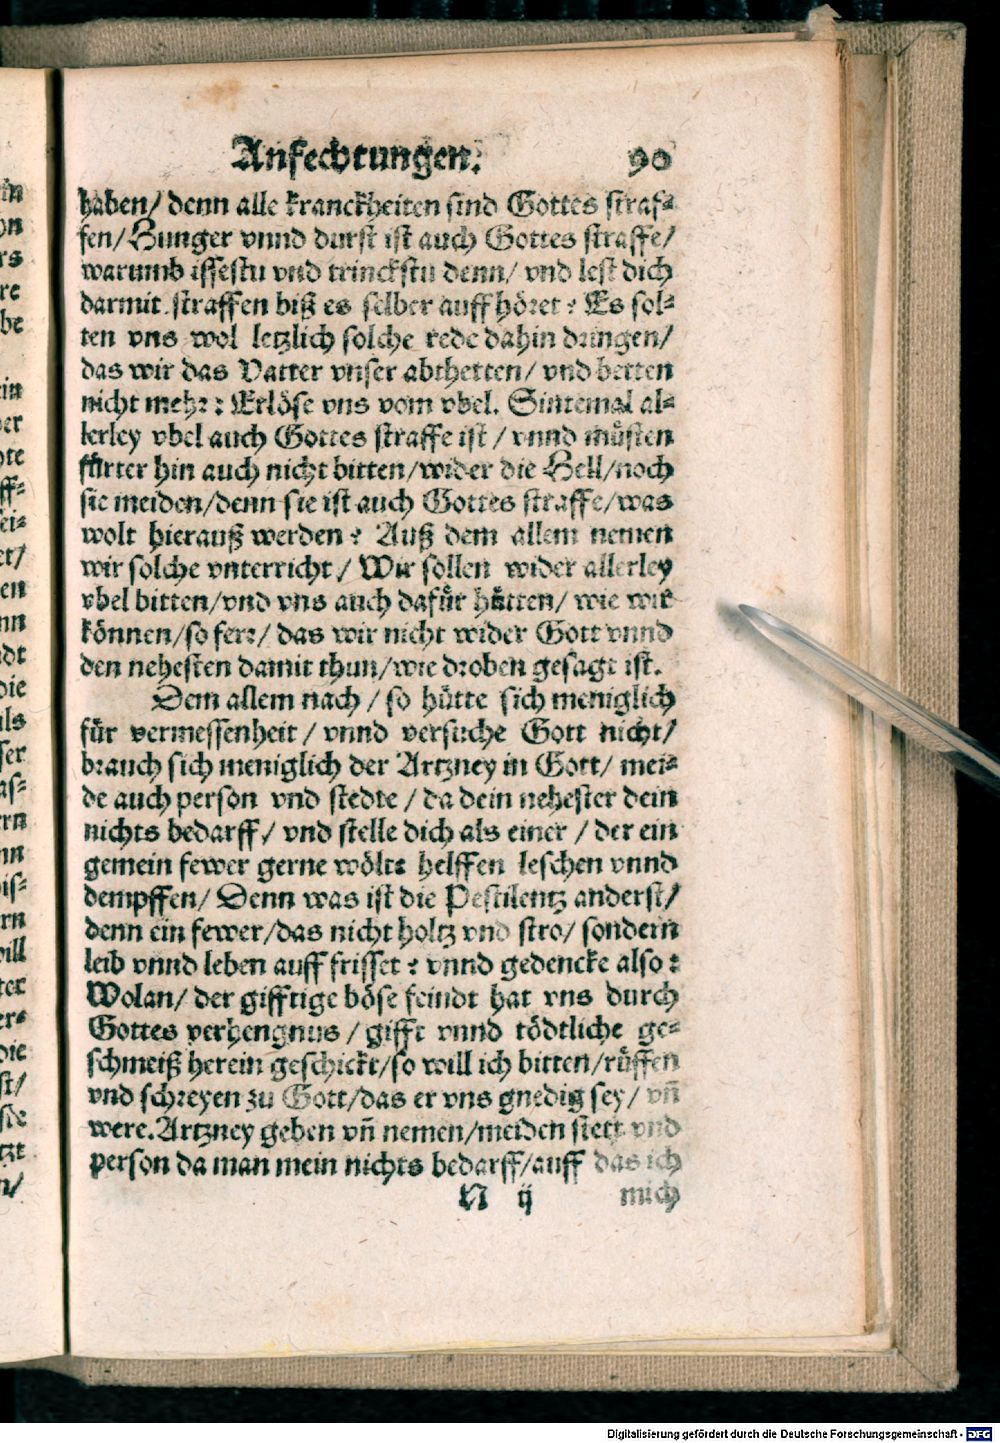 Anfechtungen. 90
haben/ denn alle kranckheiten sind Gottes straf-
fen/ Hunger vnnd durst ist auch Gottes straffe/
warumb issestu vnd trinckstu denn/ vnd lest dich
darmit straffen biß es selber auff höret? Es sol-
ten vns wol letzlich solche rede dahin dringen/
das wir das Vatter vnser abthetten/ vnd betten
nicht mehr: Erlöse vns vom vbel. Sintemal al-
lerley vbel auch Gottes straffe ist / vnnd müsten
fürter hin auch nicht bitten/wider die Hell/noch
sie meiden/denn sie ist auch Gottes straffe/was
wolt hierauß werden? Auß dem allem nemen
wir solche vnterricht / Wir sollen wider allerley
vbel bitten/vnd vns auch dafür hütten/ wie wir
können/so ferr/ das wir nicht wider Gott vnnd
den nehesten damit thun/wie droben gesagt ist.
Dem allem nach / so hütte sich meniglich
für vermessenheit / vnnd versuche Gott nicht/
brauch sich meniglich der Artzney in Gott/ mei-
de auch person vnd stedte / da dein nehester dein
nichts bedarff/ vnd stelle dich als einer / der ein
gemein fewer gerne wölte helffen leschen vnnd
dempffen/ Denn was ist die Pestilentz anderst/
denn ein fewer/das nicht holtz vnd stro/ sondern
leib vnnd leben auff frisset? vnnd gedencke also:
Wolan/ der gifftige böse feindt hat vns durch
Gottes verhengnus / gifft vnnd tödtliche ge-
schmeiß herein geschickt/so will ich bitten/rüffen
vnd schreyen zu Gott/das er vns gnedig sey/ vñ
were. Artzney geben vñ nemen/meiden stett vnd
person da man mein nichts bedarff/auff das ich
N ij mich
in
on
rs
re
be
in
er
te
ff-
ei-
et/
en
nn
dt
die
als
ser
as-
rn
nn
is-
rn
will
ter
er-
die
st/
sie
tzt
n/
Digitalisierung gefördert durch die Deutsche Forschungsgemeinschaft - DFG